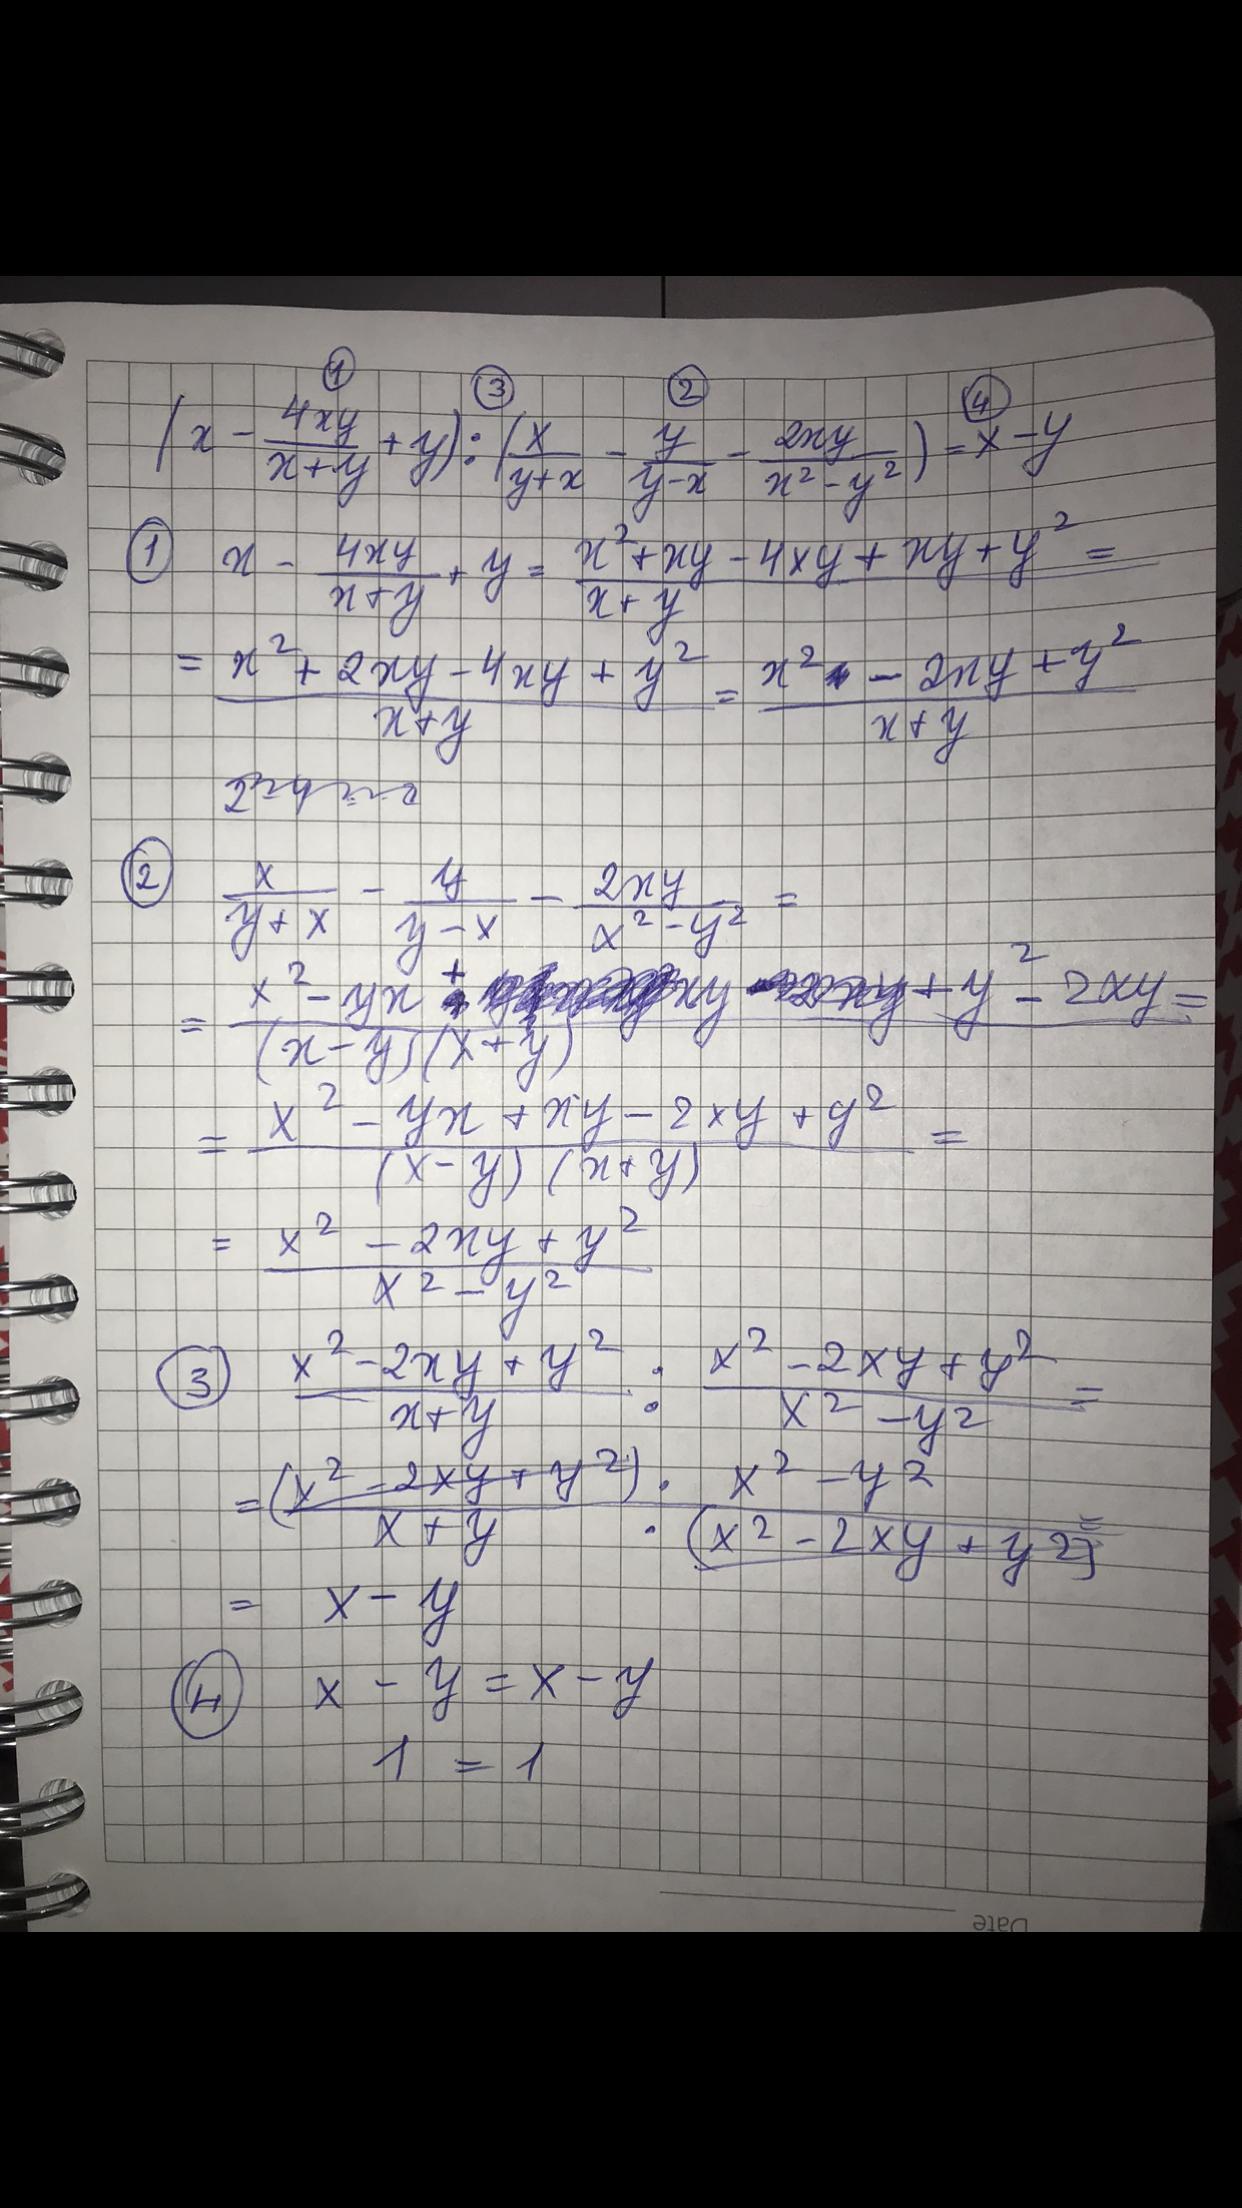 ① ③ ② ④
(x - 4xy/(x+y) + y) : (x/(y+x) - y/(y-x) - 2xy/(x² - y²)) = x - y
① x - 4xy/(x+y) + y = (x² + xy - 4xy + xy + y²)/(x+y) =
= (x² + 2xy - 4xy + y²)/(x+y) = (x² - 2xy + y²)/(x+y)
② x/(y+x) - y/(y-x) - 2xy/(x² - y²) =
= (x² - yx + xy + y² - 2xy)/((x-y)(x+y)) =
= (x² - yx + xy - 2xy + y²)/((x-y)(x+y)) =
= (x² - 2xy + y²)/(x² - y²)
③ (x² - 2xy + y²)/(x+y) : (x² - 2xy + y²)/(x² - y²) =
= ((x² - 2xy + y²) · x² - y²)/(x+y · (x² - 2xy + y²)) =
= x - y
④ x - y = x - y
1 = 1
Date